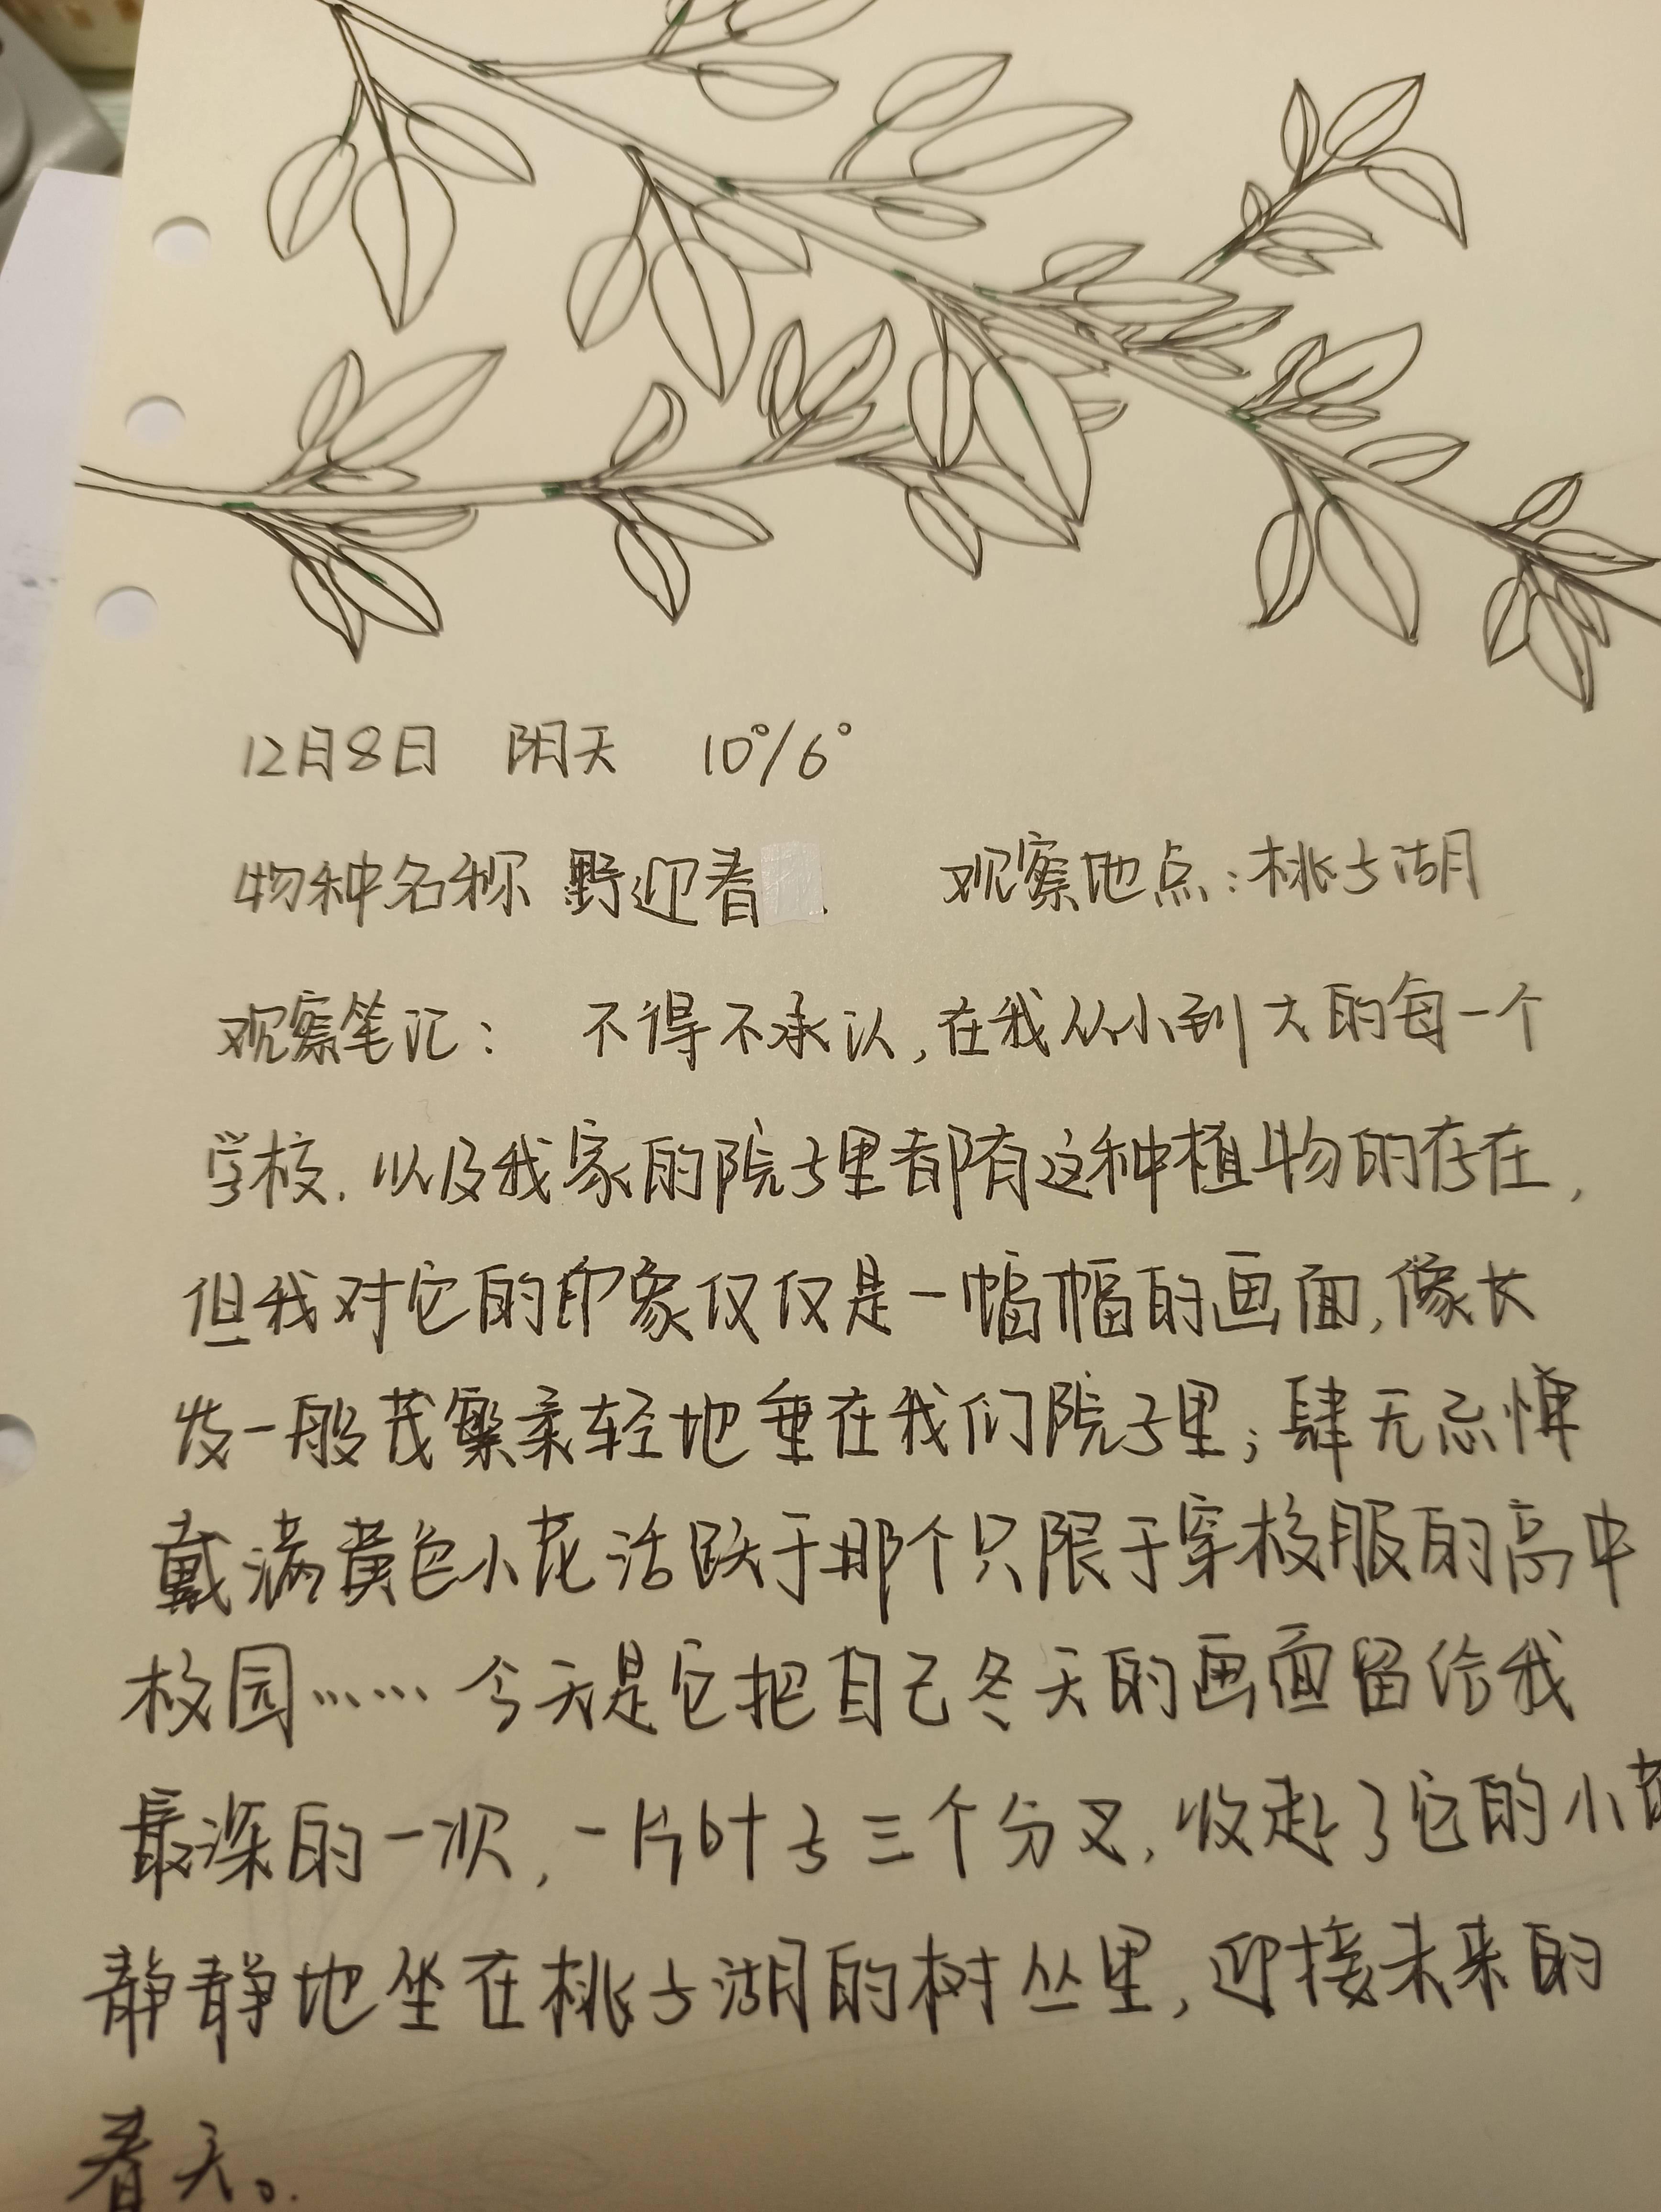 12月8日 阴天 10°/6°
物种名称 野迎春 观察地点:桃子湖
观察笔记: 不得不承认,在我从小到大的每一个
学校.以及我家的院子里都有这种植物的存在,
但我对它的印象仅仅是一幅幅的画面,像长
发一般茂繁柔轻地垂在我们院子里;肆无忌惮
戴满黄色小花活跃于那个只限于穿校服的高中
校园……今天是它把自己冬天的画面留给我
最深的一次,一片叶子三个分叉,收起了它的小花
静静地坐在桃子湖的树丛里,迎接未来的
春天。